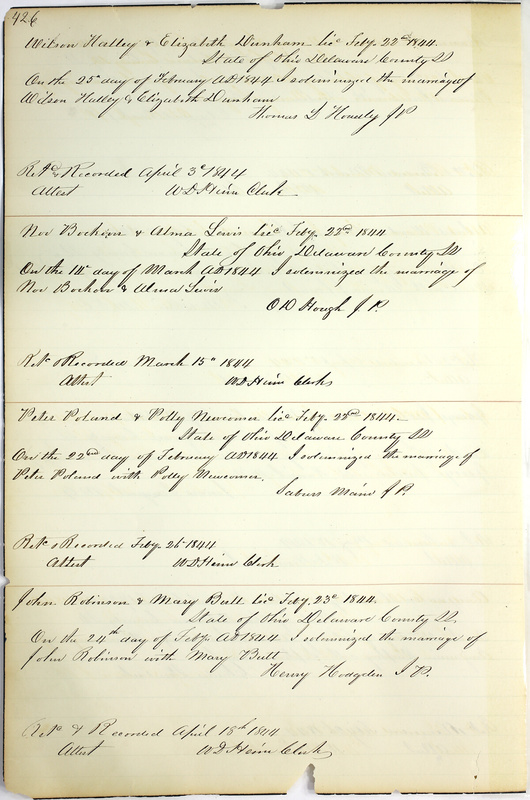 426
Wilson Hatley & Elizabeth Dunham lic Feby. 22d 1844.
State of Ohio Delaware County SS
On the 25th day of February AD 1844 I solemnized the marriage of
Wilson Hatley & Elizabeth Dunham
Thomas L J P
Retd & Recorded April 3d 1844
Attest W D Heim Clerk
Noe & Alma Lewis lic Feby. 22nd 1844
State of Ohio, Delaware County SS
On the 14th day of March AD 1844 I solemnized the marriage of
Noe & Alma Lewis
O D Hough J. P.
Retd & Recorded March 15th 1844
Attest W D Heim Clerk
Peter Poland & Polly Newcomer lic Feby. 22nd 1844.
State of Ohio Delaware County SS
On the 22nd day of February AD 1844 I solemnized the marriage of
Peter Poland with Polly Newcomer.
J P.
Retd & Recorded Feby. 26th 1844
Attest W D Heim Clerk
John Robinson & Mary Butt lic Feby. 23d 1844.
State of Ohio Delaware County SS.
On the 24th day of Feby. AD 1844 I solemnized the marriage of
John Robinson with Mary Butt
Henry Hodgden J P.
Retd & Recorded April 18th 1844
Attest W D Heim Clerk